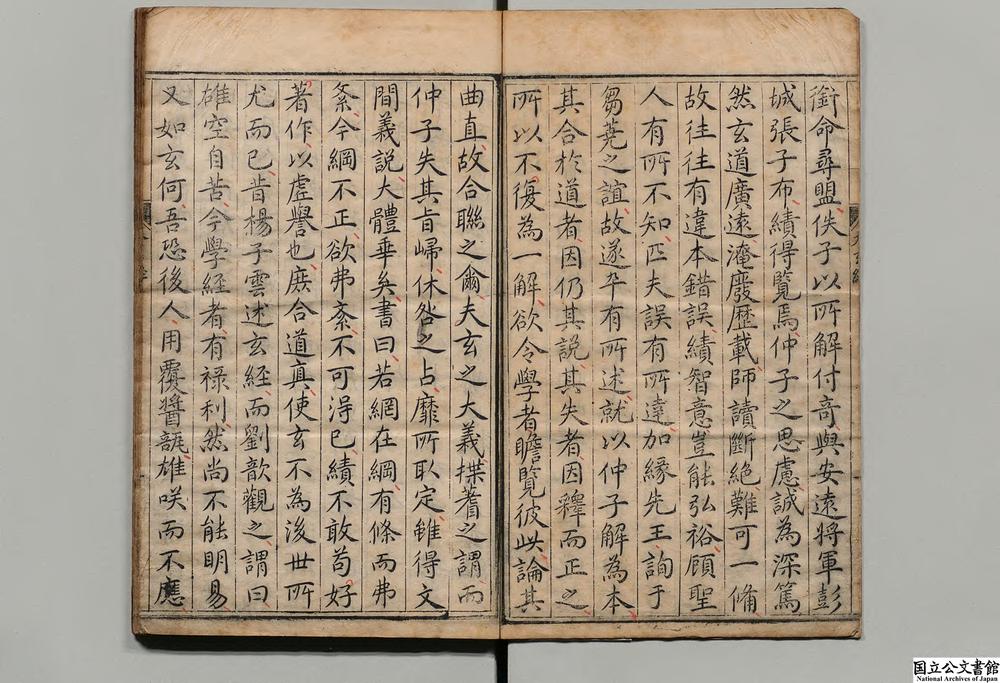 銜命尋盟佚子以所解付奇與安遠將軍彭
城張子布績得覽焉仲子之思慮誠為深篤
然玄道廣遠淹廢歷載師讀斷絕難可一備
故往往有違本錯誤績智意豈能弘裕顧聖
人有所不知匹夫誤有所達加緣先王詢于
芻蕘之誼故遂卒有所述就以仲子解為本
其合於道者因仍其說其失者因釋而正之
所以不復為一解欲令學者瞻覽彼此論其
曲直故合聯之爾夫玄之大義揲蓍之謂而
仲子失其旨歸休咎之占靡所取定雖得文
間義說大體乖矣書曰若網在綱有條而弗
紊今綱不正欲弗紊不可得已績不敢苟好
著作以虛譽也庶合道真使玄不為後世所
尤而已昔楊子雲述玄經而劉歆觀之謂曰
雄空自苦今學經者有祿利然尚不能明易
又如玄何吾恐後人用覆醬瓿雄咲而不應
国立公文書館
National Archives of Japan